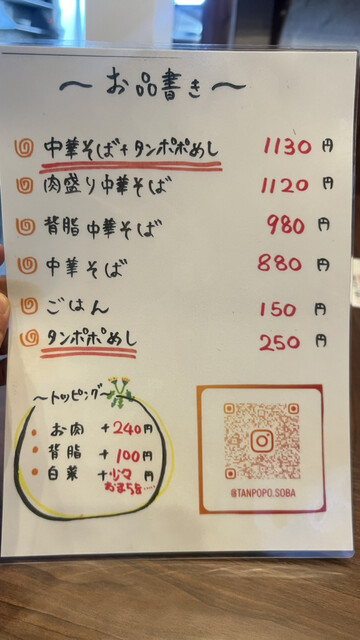 ～お品書き～
中華そば+タンポポめし 1130円
肉盛り中華そば 1120円
背脂中華そば 980円
中華そば 880円
ごはん 150円
タンポポめし 250円
～トッピング～
お肉 +240円
背脂 +100円
白菜 +少々円
おまちを……
@TANPOPO.SOBA